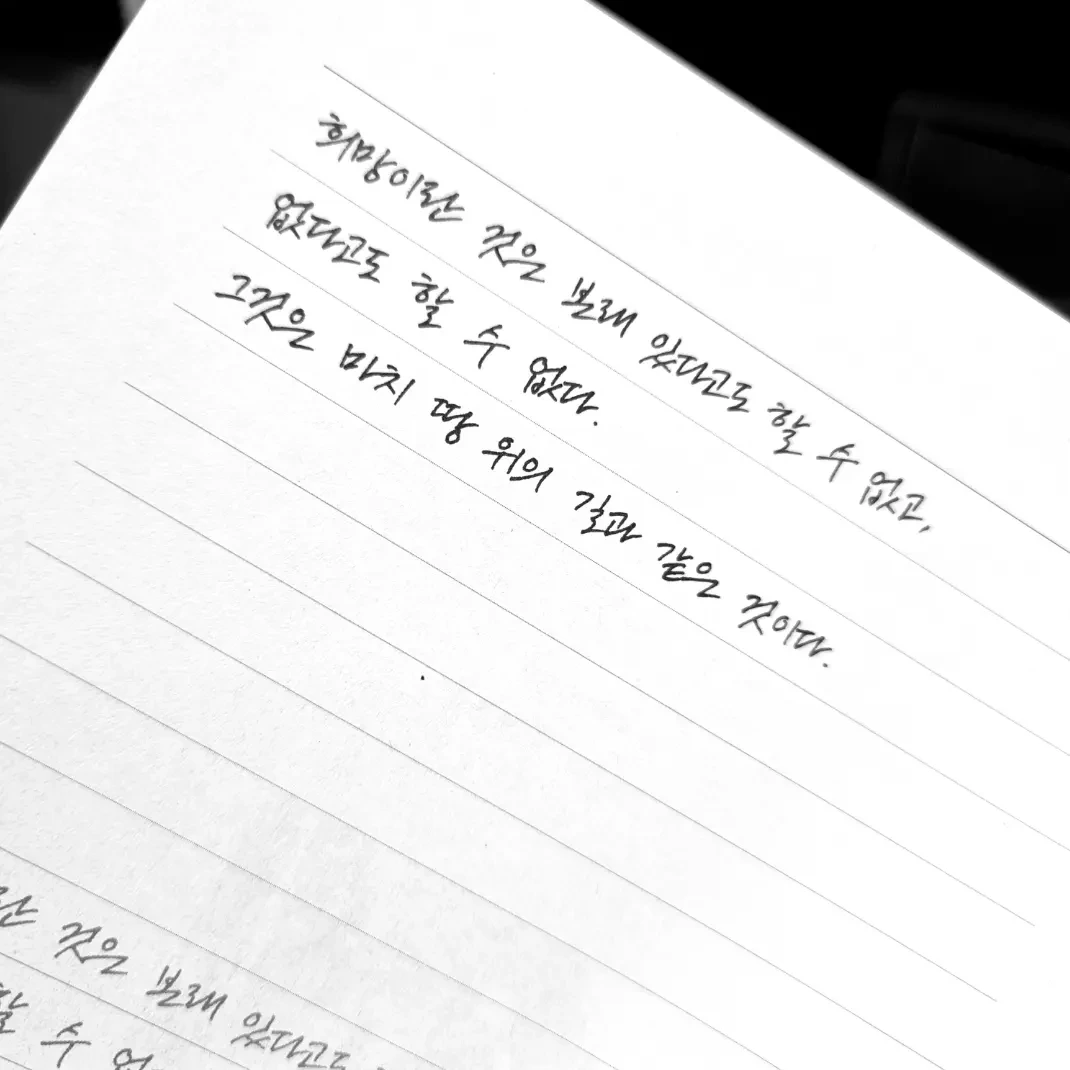 희망이란 것은 본래 있다고도 할 수 없고,
없다고도 할 수 없다.
그것은 마치 땅 위의 길과 같은 것이다.
것은 본래 있다고도
할 수